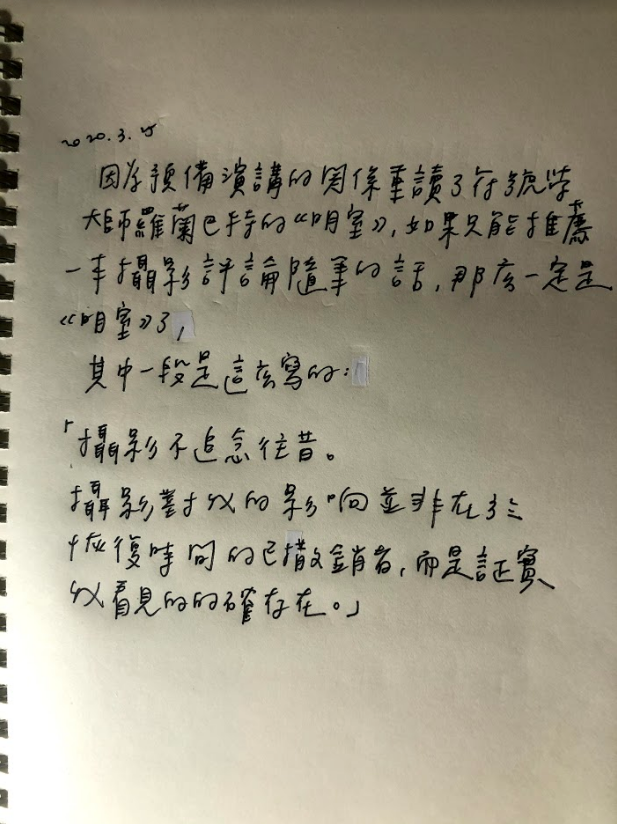 2020.3.25
因為預備演講的関係重讀了符號學
大師羅蘭巴特的《明室》,如果只能推薦
一本攝影評論隨筆的話,那麽一定是
《明室》了,
其中一段是這麽寫的:
「攝影不追念往昔。
攝影對我的影响並非在於
恢復時間的已撤銷者,而是証實
我看見的的確存在。」